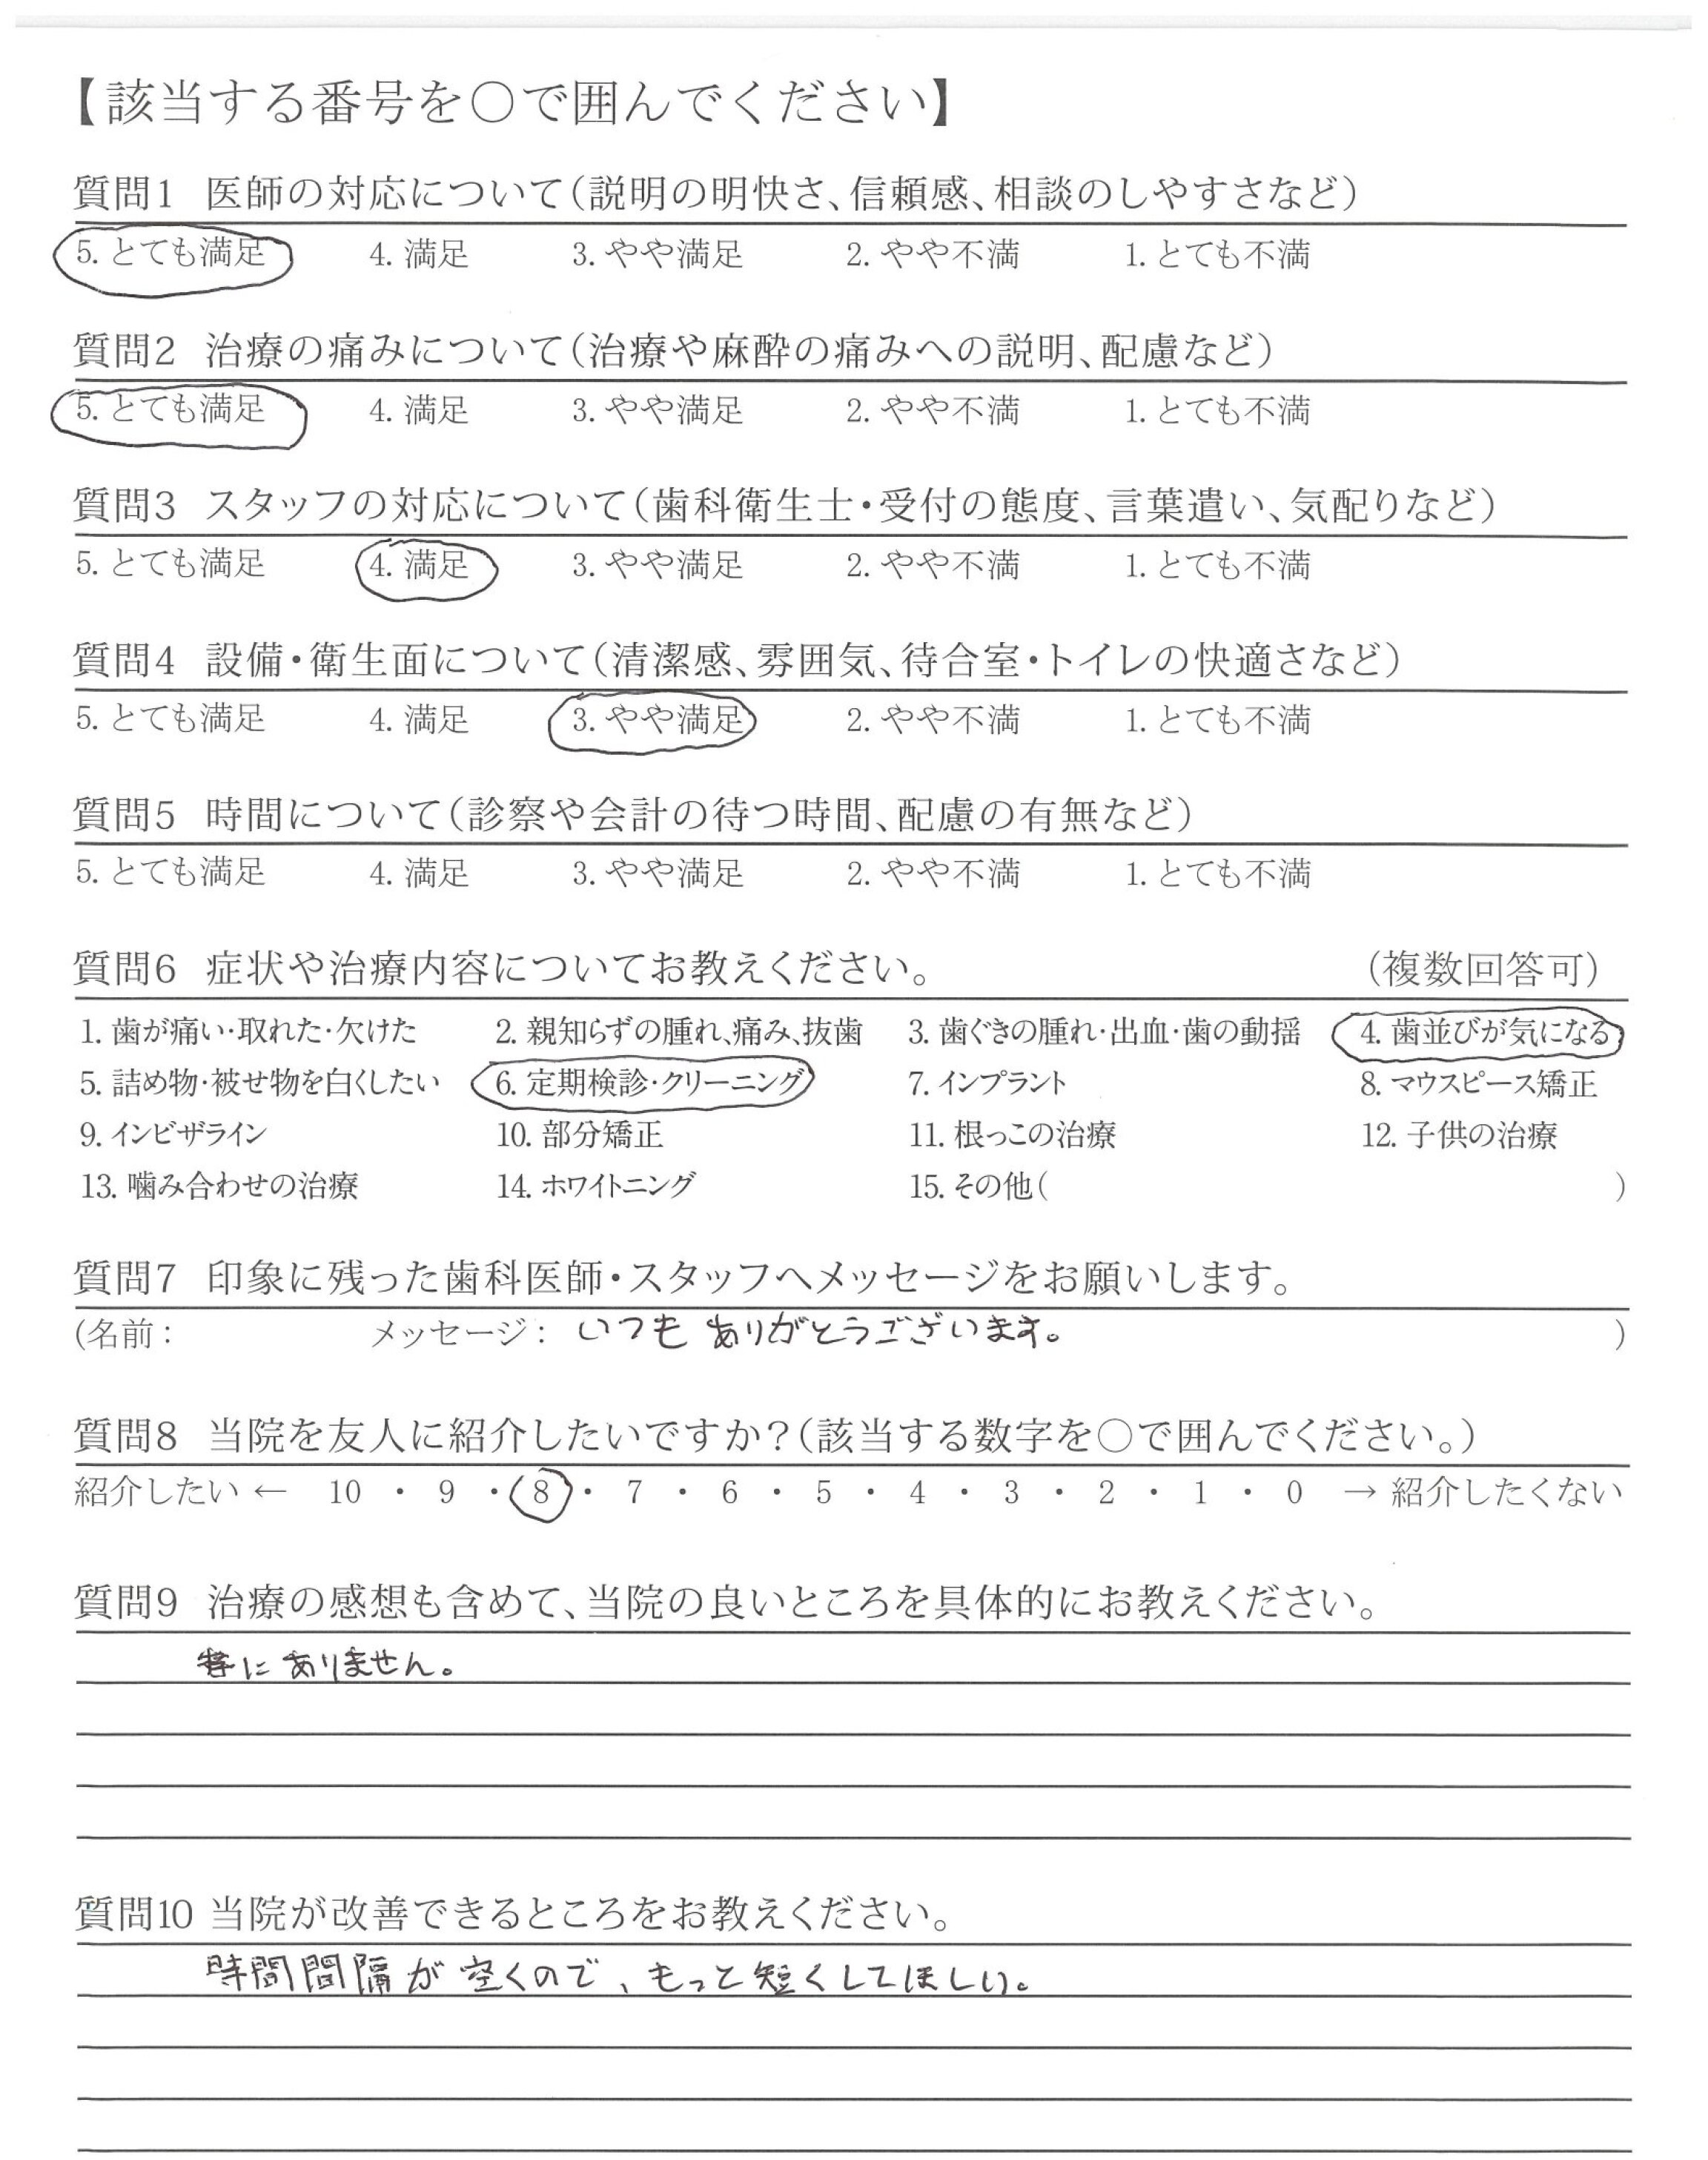 【該当する番号を○で囲んでください】
質問1 医師の対応について(説明の明快さ、信頼感、相談のしやすさなど)
5. とても満足 4. 満足 3. やや満足 2. やや不満 1. とても不満
質問2 治療の痛みについて(治療や麻酔の痛みへの説明、配慮など)
5. とても満足 4. 満足 3. やや満足 2. やや不満 1. とても不満
質問3 スタッフの対応について(歯科衛生士・受付の態度、言葉遣い、気配りなど)
5. とても満足 4. 満足 3. やや満足 2. やや不満 1. とても不満
質問4 設備・衛生面について(清潔感、雰囲気、待合室・トイレの快適さなど)
5. とても満足 4. 満足 3. やや満足 2. やや不満 1. とても不満
質問5 時間について(診察や会計の待つ時間、配慮の有無など)
5. とても満足 4. 満足 3. やや満足 2. やや不満 1. とても不満
質問6 症状や治療内容についてお教えください。 (複数回答可)
1. 歯が痛い・取れた・欠けた 2. 親知らずの腫れ、痛み、抜歯 3. 歯ぐきの腫れ・出血・歯の動揺 4. 歯並びが気になる
5. 詰め物・被せ物を白くしたい 6. 定期検診・クリーニング 7. インプラント 8. マウスピース矯正
9. インビザライン 10. 部分矯正 11. 根っこの治療 12. 子供の治療
13. 噛み合わせの治療 14. ホワイトニング 15. その他( )
質問7 印象に残った歯科医師・スタッフへメッセージをお願いします。
(名前: メッセージ: いつもありがとうございます。 )
質問8 当院を友人に紹介したいですか?(該当する数字を○で囲んでください。)
紹介したい ← 10 ・ 9 ・ 8 ・ 7 ・ 6 ・ 5 ・ 4 ・ 3 ・ 2 ・ 1 ・ 0 → 紹介したくない
質問9 治療の感想も含めて、当院の良いところを具体的にお教えください。
特にありません。
質問10 当院が改善できるところをお教えください。
時間間隔が空くので、もっと短くしてほしい。